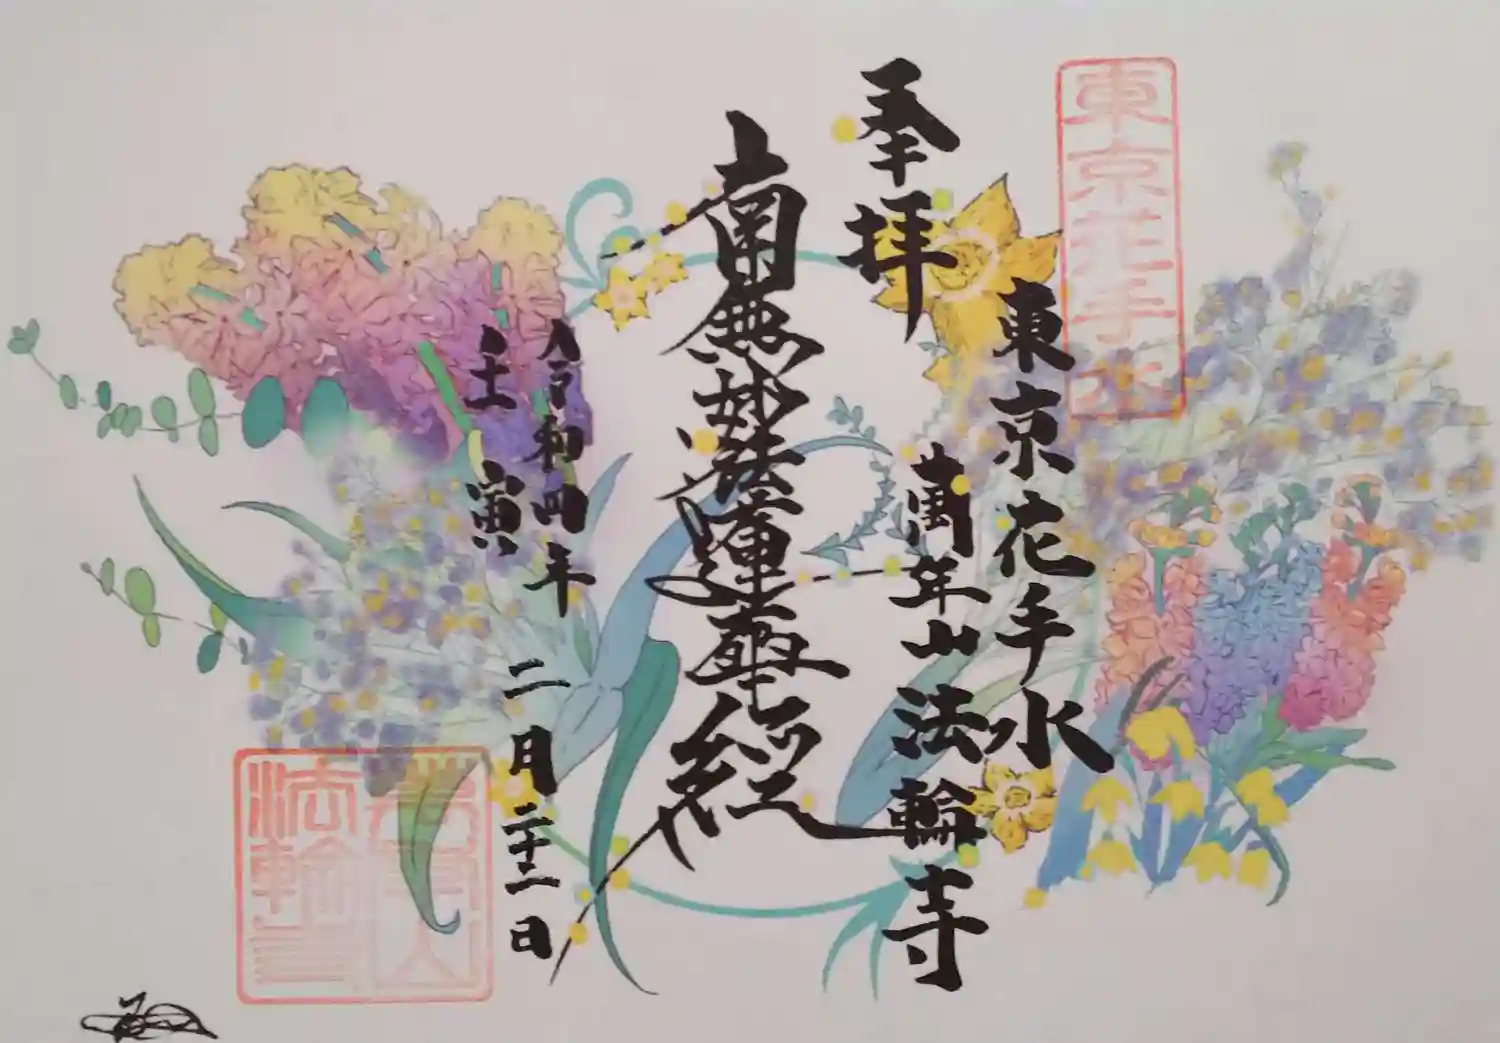 東京花手水
奉拝
東京花手水
萬年山法輪寺
南無妙法蓮華經
令和四年二月二十二日
壬寅
萬年山
法輪寺